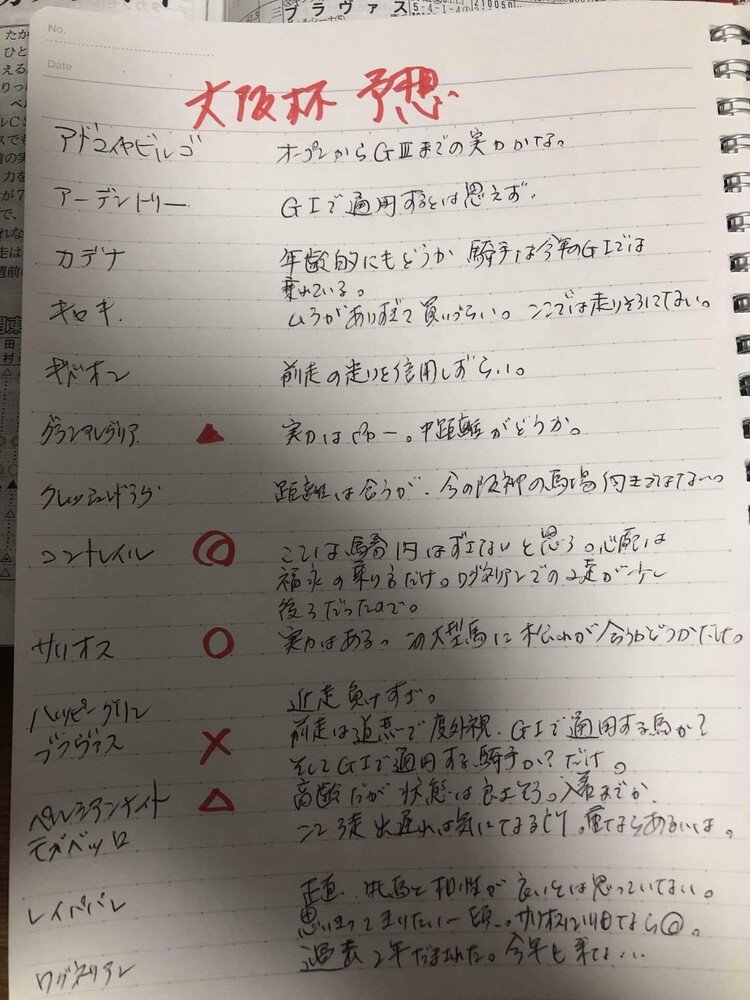 ブラヴァス
5-4-1-4
No.
Date
大阪杯 予想
アドマイヤビルゴ オープンからGⅢまでの実力かな。
アーデントリー GⅠで通用するとは思えず。
カデナ 年齢的にもどうか 騎手は今年のGⅠでは
乗れている。
キセキ ムラがありすぎて買いづらい。ここでは走りそうにない。
ギベオン 前走の走りを信用しずらい。
グランアレグリア ▲ 実力はNo一。中距離がどうか。
クレッシェンドラヴ 距離は合うが、今の阪神の馬場向きではない。
コントレイル ◎ ここは馬券内はずさないと思う。心配は
福永の乗り方だけ。ワグネリアンでの2走が少し
後ろだったので。
サリオス ○ 実力はある。この大型馬に松山が合うかどうかだけ。
ハッピーグリン 近走負けすぎ。
ブラヴァス × 前走は道悪で度外視。GⅠで通用する馬か?
そしてGⅠで通用する騎手か?だけ。
ペルシアンナイト △ 高齢だが状態は良さそう。入着までか。
モズベッロ ここ3走出遅れは気になるが、重ならあるいは。
レイパパレ 正直、牝馬と相性が良いとは思っていない。
思い切って走りたい一頭。サリオスに川田なら◎。
ワグネリアン 過去2年だまされた。今年も来ない…